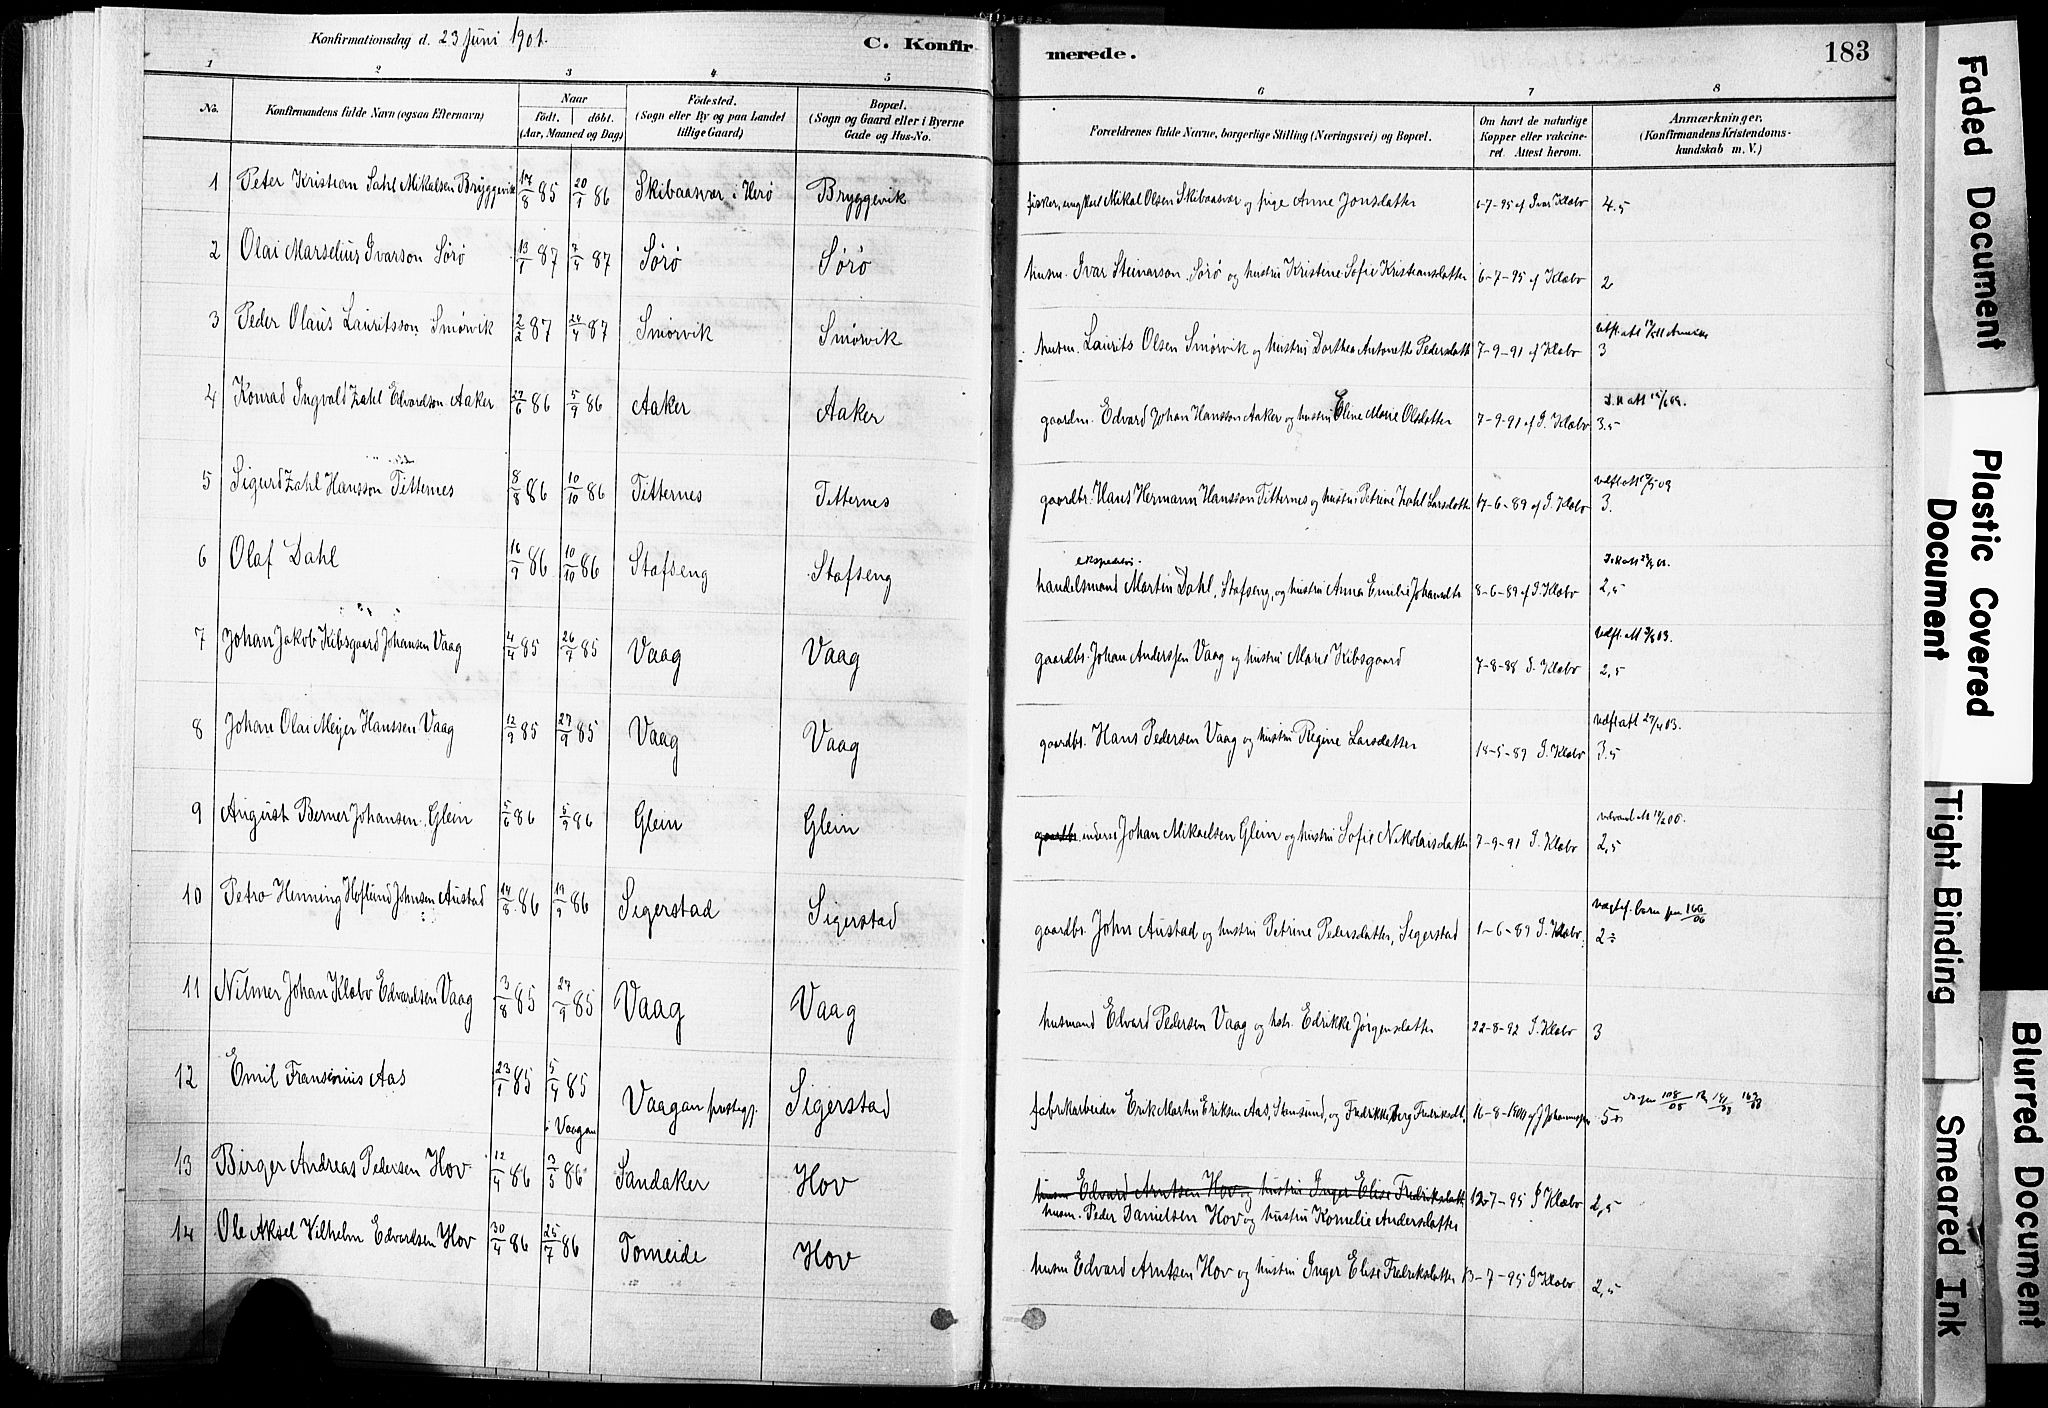 Konfirmationsdag d. 23 Juni 1901.
C. Konfirmerede.
183
1 2 3 4 5 6 7 8
No.
Konfirmandens fulde Navn (ogsaa Efternavn)
Naar
født. døbt.
(Aar, Maaned og Dag)
Fødested.
(Sogn eller By og paa Landet tillige Gaard)
Bopæl.
(Sogn og Gaard eller i Byerne Gade og Hus-No.
Forældrenes fulde Navne, borgerlige Stilling (Næringsvei) og Bopæl.
Om havt de naturlige Kopper eller vakcineret. Attest herom.
Anmærkninger.
(Konfirmandens Kristendomskundskab m. V.)
1 Peter Kristian Sahl Mikalsen Bryggevik 17/8 85 20/1 86 Skibaasvær i Herø Bryggevik fisker, ungkarl Mikal Olsen Skibaasvær og pige Anne Jonsdatter 6-7-95 af Ivar Klæbo 4.5
2 Olai Marselius Ivarson Sørø 13/1 87 7/4 87 Sørø Sørø husm. Ivar Steinarson Sørø og hustru Kristine Sofie Kristiansdatter 6-7-95 af Klæbo 2
3 Peder Olaus Lauritsson Smørvik 2/2 87 24/4 87 Smørvik Smørvik husm. Laurits Olsen Smørvik og hustru Dorthea Antonette Pedersdatt 7-9-91 af Klæbo 3
4 Konrad Ingvald Zahl Edvardson Aaker 27/6 86 5/9 86 Aaker Aaker gaardm. Edvard Johan Hansson Aaker og hustru Eline Marie Olsdatter 7-9-91 af I. Klæbo 3.5
5 Sigurd Zahl Hansson Titternes 8/8 86 10/10 86 Titternes Titternes gaardbr. Hans Hermann Hansson Titternes og hustru Petrine Zahl Larsdatter 17-6-89 af I. Klæbo 3.
6 Olaf Dahl 16/9 86 10/10 86 Stafseng Stafseng handelsmand Martin Dahl, Stafseng, og hustru Anna Emilie Johansdtr 8-6-89 af I. Klæbo 2,5
7 Johan Jakob Kibsgaard Johansen Vaag 4/4 85 26/7 85 Vaag Vaag gaardbr. Johan Anderssen Vaag og hustru Marie Kibsgaard 7-8-88 I. Klæbo 2,5
8 Johan Olai Meyer Hanssen Vaag 12/9 85 27/9 85 Vaag Vaag gaardbr. Hans Pedersen Vaag og hustru Regine Larsdatter 18-5-89 I. Klæbo 3.5
9 August Berner Johansen Glein 5/6 86 5/9 86 Glein Glein gaardbr. inderst Johan Mikaelsen Glein og hustru Sofie Nikolaisdatter 7-9-91 I. Klæbo 2,5
10 Petro Henning Hoflund Johnsen Austad 14/8 86 19/9 86 Sigerstad Sigerstad gaardbr. John Austad og hustru Petrine Pedersdatter, Sigerstad 1-6-89 I. Klæbo 2
11 Nilmer Johan Klæbo Edvardsen Vaag 3/8 85 27/9 85 Vaag Vaag husmand Edvard Pedersen Vaag og hstr. Edrikke Jørgensdatter 22-8-92 I. Klæbo 3
12 Emil Fransenius Aas 23/1 85 5/4 85 i Vaagan Vaagan prestegj. Sigerstad fabrikarbeider Erik Martin Eriksen Aas, Stensund, og Fredrikke Berg Fredriksdt. 5
13 Birger Andreas Pedersen Hov 12/4 86 3/5 86 Sandaker Hov husm Edvard Arntsen Hov og hustru Inger Elise Fredriksdatt 12-7-95 I Klæbo 2,5
husm. Peder Danielsen Hov og hustru Kornelie Andersdatter
14 Ole Aksel Vilhelm Edvardsen Hov 30/4 86 25/7 86 Tomeide Hov husm Edvard Arntsen Hov og hustru Inger Elise Fredriksdatter 13-7-95 I Klæbo 2,5
Faded Document
Plastic Covered Document
Tight Binding
Blurred Document
Smeared Ink